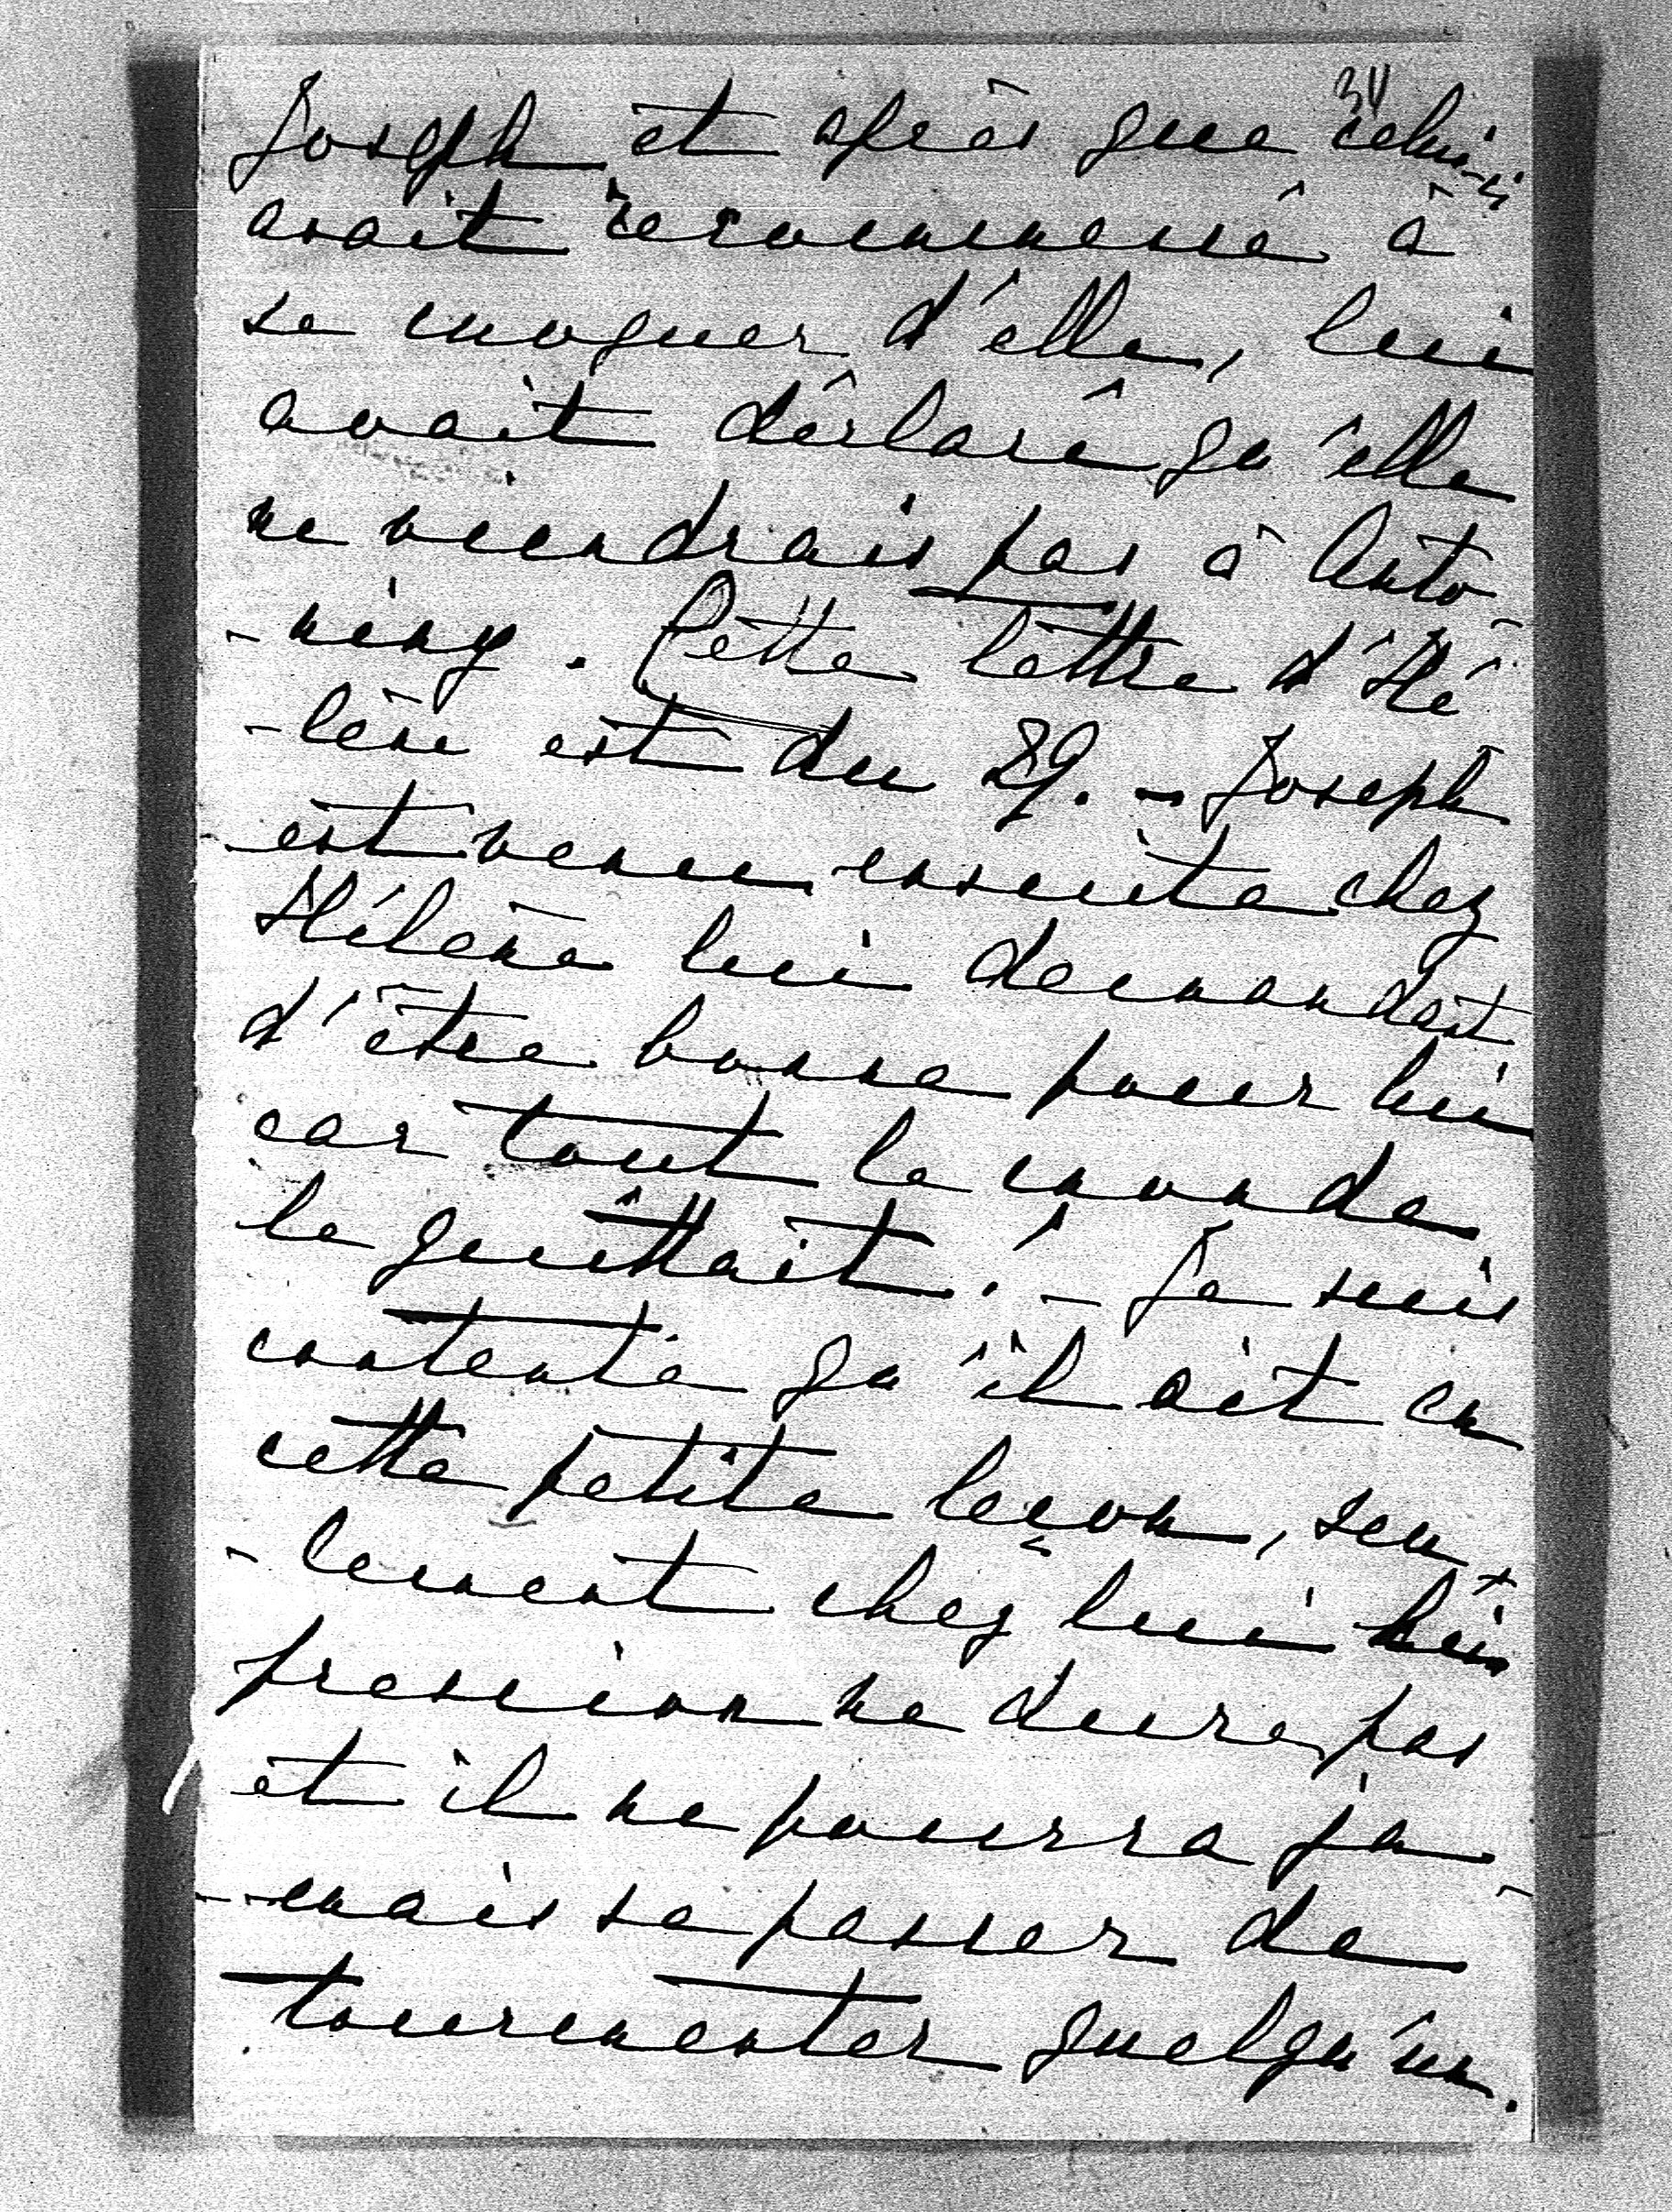 34
Joseph et après que celui-ci
avait recommencé à
se moquer d'elle, lui
avait déclaré qu'elle
ne viendrais pas à Anto-
-niny. Cette lettre d'Hé-
-lène est du 29. - Joseph
est venu ensuite chez
Hélène lui demandant
d'être bonne pour lui
car tout le monde
le quittait! - Je suis
contente qu'il ait eu
cette petite leçon, seu-
-lement chez lui l'im-
pression ne dure pas
et il ne pourra ja-
-mais se passer de
tourmenter quelqu'un.